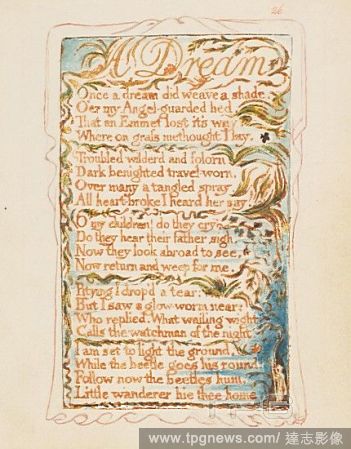 26
A Dream
Once a dream did weave a shade,
Oer my Angel-guarded bed,
That an Emmet lost it's way
Where on grass methought I lay.
Troubled wilderd and folorn
Dark benighted travel-worn,
Over many a tangled spray
All heart-broke I heard her say.
O my children! do they cry,
Do they hear their father sigh.
Now they look abroad to see,
Now return and weep for me.
Pitying I drop'd a tear:
But I saw a glow-worm near:
Who replied. What wailing wight
Calls the watchman of the night.
I am set to light the ground,
While the beetle goes his round:
Follow now the beetles hum,
Little wanderer hie thee home
www.tpgnews.com / 達志影像